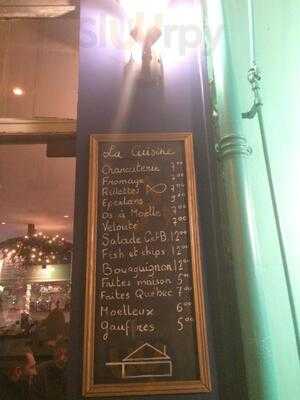 La Cuisine
Charcuterie 7°°
Fromage 7°°
Rillettes 7°°
Eperlans 7°°
Os à Moelle 7°°
Velouté 7°°
Salade C&B. 12°°
Fish et chips 12°°
Bourguignon 12°°
Faites maison 5°°
Faites Quebec 7°°
Moelleux 6°°
gaufres 5°°
Slurrpy